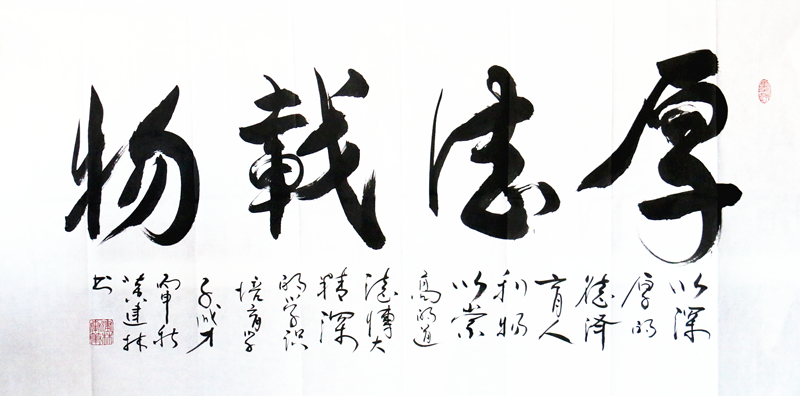 厚德載物
以深
厚的
德泽
育人
利物
以崇
高的道
德博大
精深
的学识
培育学
子成才
丙申秋
建林
书